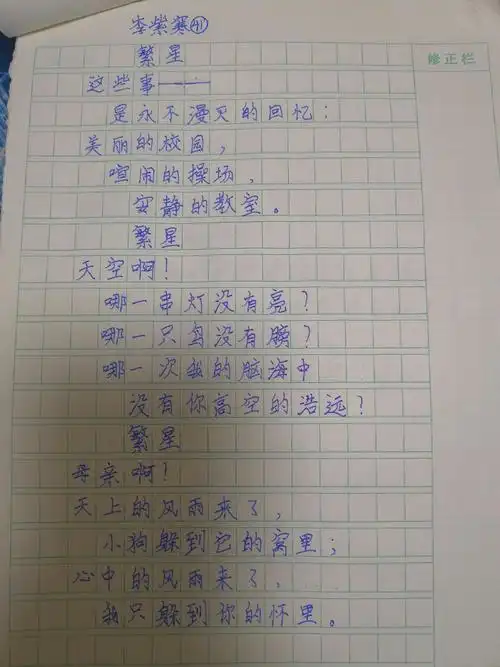 李紫寒㊶
修正栏
繁星
这些事——
是永不漫灭的回忆：
美丽的校园，
喧闹的操场，
安静的教室。
繁星
天空啊！
哪一串灯没有亮？
哪一只鸟没有
哪一次我的脑海中
没有你高空的浩远？
繁星
母亲啊！
天上的风雨来了，
小狗躲到它的窝里；
心中的风雨来了，
我只躲到你的怀里。